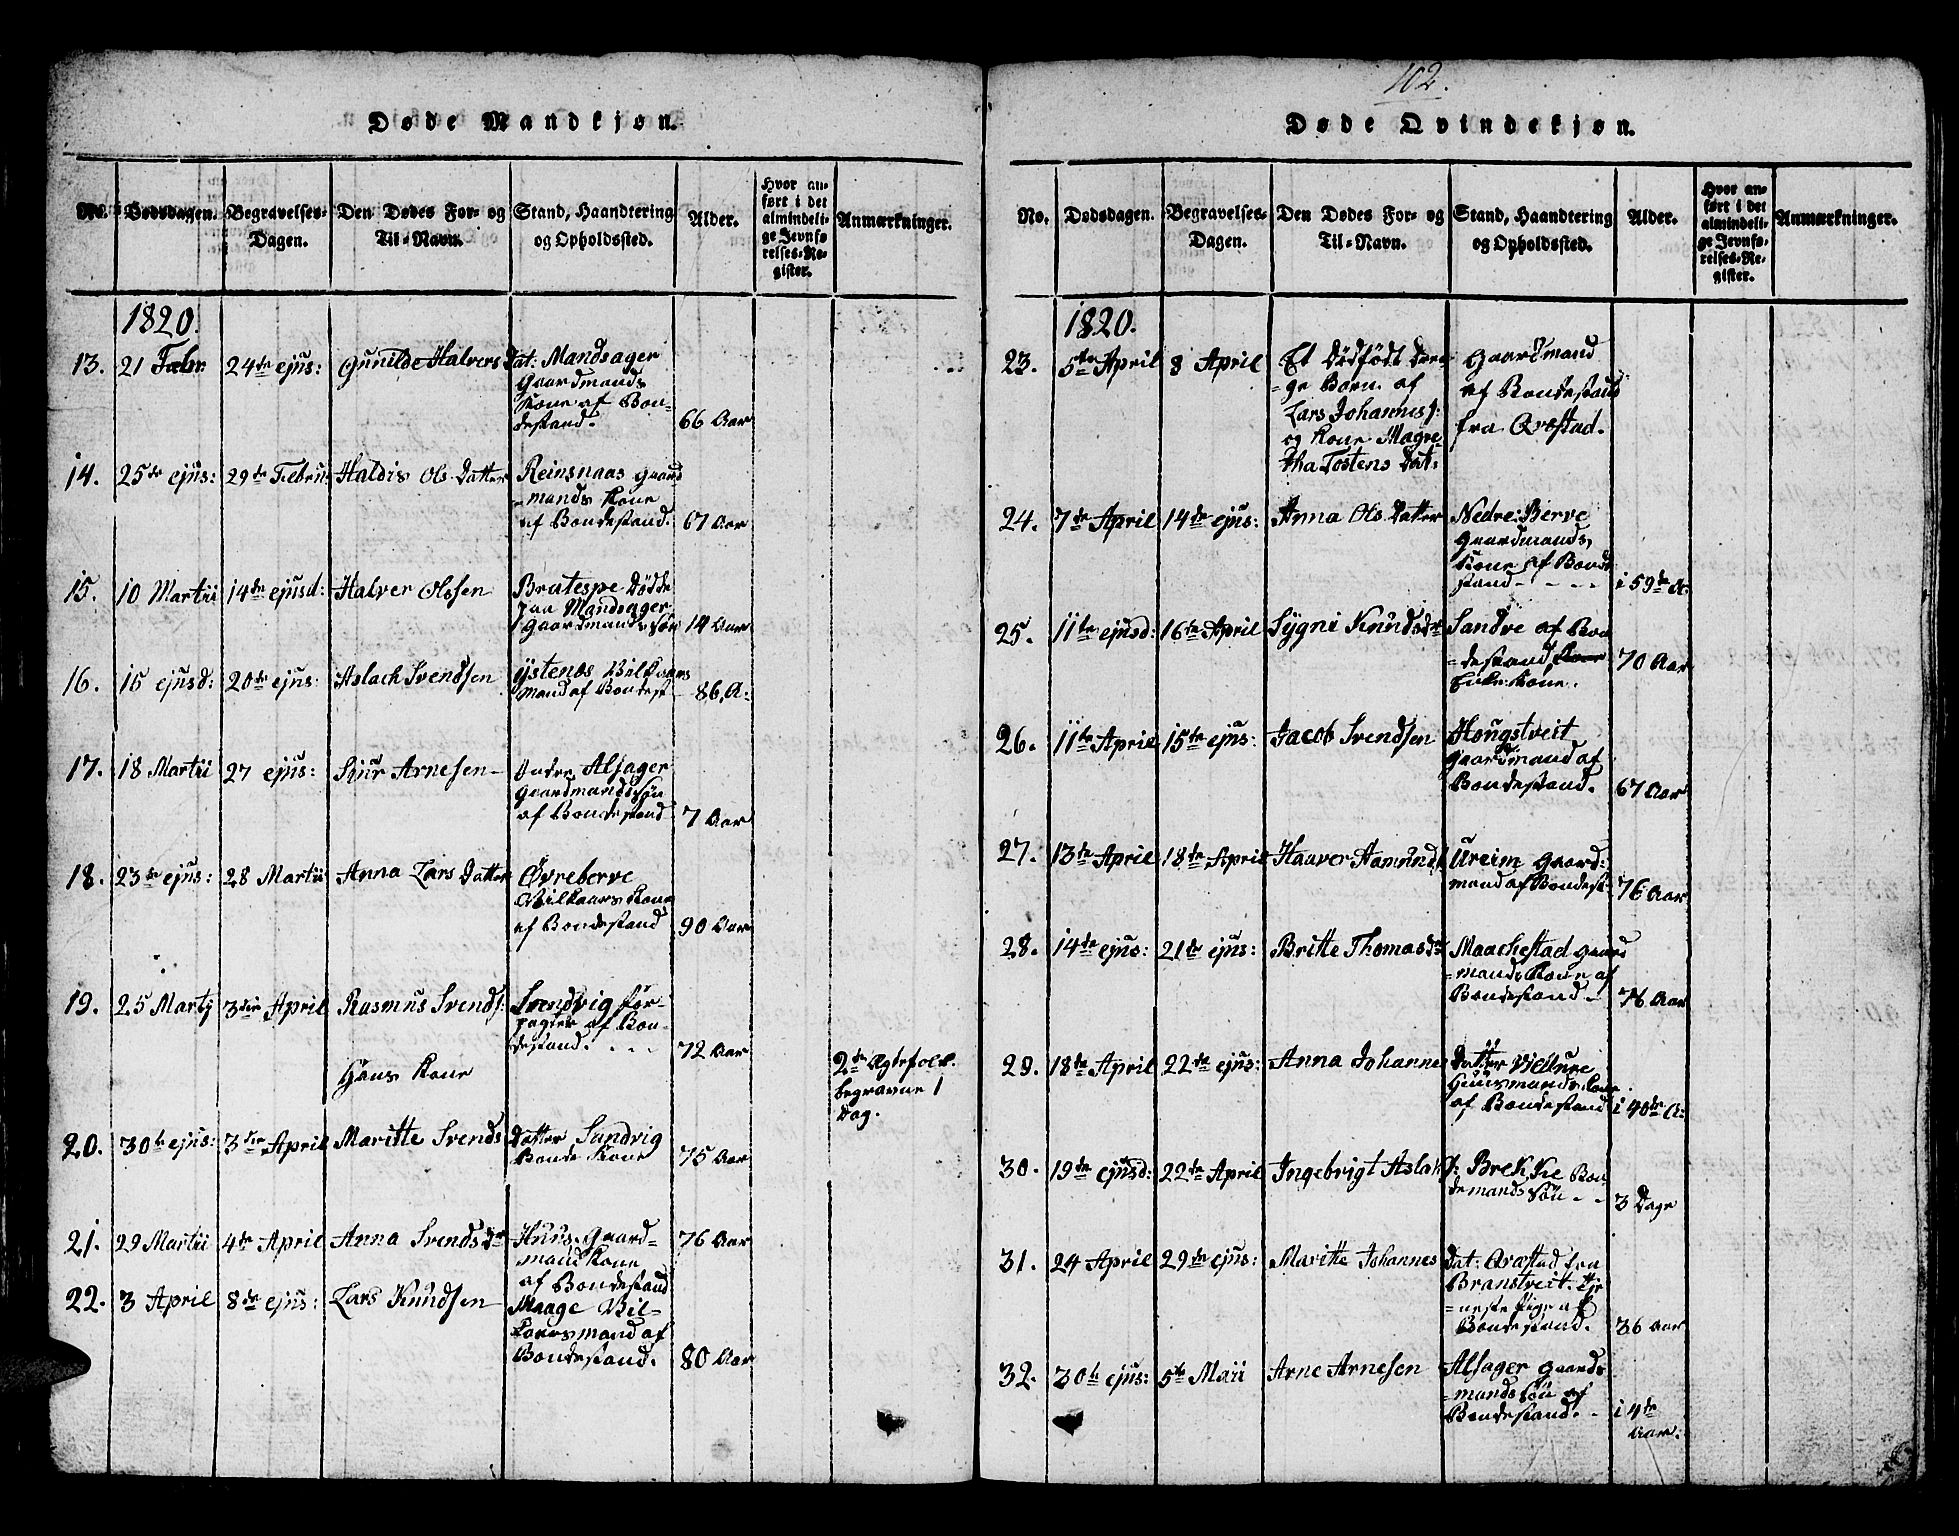 102.
Døde Mandkjøn.
No. Dødsdagen. Begravelses-Dagen. Den Dødes For- og Til-Navn. Stand, Haandtering og Opholdssted. Alder. Hvor anført i det almindelige Jevnførelses-Register. Anmærkninger.
1820.
13. 21 Febr: 24de ejus: Gunilde Halvers Dat: Mandsager
Gaardmands
Kone af Bon-
destand. 66 Aar
14. 25de ejus: 29de Febru: Haldis Ols Datter Reinsnaas gaard
-mands Kone
af Bondestand. 67 Aar
15. 10 Martii 14de ejusd: Halver Olssen Bratespe Dødde
paa Mandsager
gaardmands søn 14 Aar
16. 15 ejusd: 20de ejus: Aslach Svendsen Vilkaars
mand af Bondest 86 A:
17. 18 Martii 27 ejus: Siur Arnesen Indre Alsager
gaardmands søn
af Bondestand 7 Aar
18. 23de ejus: 28 Martii Anna Lars Datter Øvreberve
Vilkaars Kone
af Bondestand 90 Aar
19. 25 Martij 3die April Rasmus Svends: Svendvig for-
pagter af Bon-
destand. 72 Aar
Hans Kone
2de Ægtefolk
begravne 1
Dag.
20. 30te ejus: 3die April Maritte Svends Datter Sandvig
Bonde Kone 75 Aar
21. 29 Martii 4de April Anna Svendsdr Huus. Gaard-
mand Kone
af Bondestand 76 Aar
22. 3 April 8de ejus: Lars Knudsen Maage Vil-
kaarsmand af
Bondestand. 80 Aar
Døde Qvindekjøn.
No. Dødsdagen. Begravelses-Dagen. Den Dødes For- og Til-Navn. Stand, Haandtering og Opholdssted. Alder. Hvor anført i det almindelige Jevnførelses-Register. Anmærkninger.
1820.
23. 5te April 8 April Et Dødfødt Dren- Gaardmand
-ge Barn. af af Bondestand
Lars Johanness: fra Qvæstad.
og Kone Magre-
tha Tostens Dat:
24. 7de April 14de ejus: Anna Ols Datter Nedre: Berve
Gaardmands
Kone af Bonde
stand - - - - i 59de A:
25. 11te ejusd: 16te April Sygni Knudsdr Sandve af Bon
-destand
Enke Kone. 70 Aar
26. 11te April 15de ejus: Jacob Svendsen Hougstveit
gaardmand af
Bondestand. 67 Aar
27. 13te April 18de April Haaver Aamunds Ureim gaard:
mand af Bondest. 76 Aar
28. 14de ejus: 21de ejus: Britte Thomasdr Maachestad gaard
-mands Kone af
Bondestand. 76 Aar
29. 18de April 22de ejus: Anna Johannes Datter Vidlure
Huusmands Kone
af Bondestand i 40de A:
30. 19de ejusd: 22de April Ingebrigt Aslaks: Brekke Bon
demands søn - - 3 Dage
31. 24 April 29de ejus: Maritte Johannes Dat: Qvæstad fra
Branstveit. tje
-neste Pige af
Bondestand. 36 Aar
32. 30te ejus: 5te Maii Arne Arnesen Alsager gaards
-mands søn af
Bondestand. - i 4de
Aar.